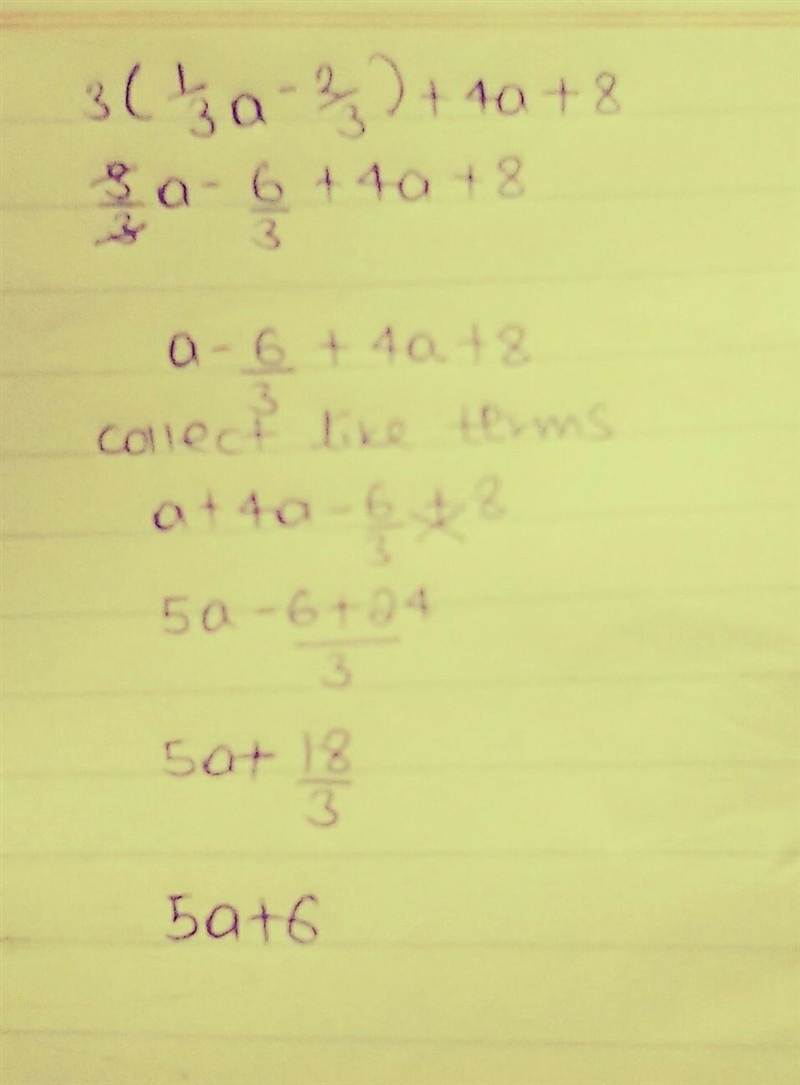 3(1/3 a - 2/3) + 4a + 8
3/3 a - 6/3 + 4a + 8
a - 6/3 + 4a + 8
collect like terms
a + 4a - 6/3 + 8
5a - 6 + 24 / 3
5a + 18/3
5a + 6